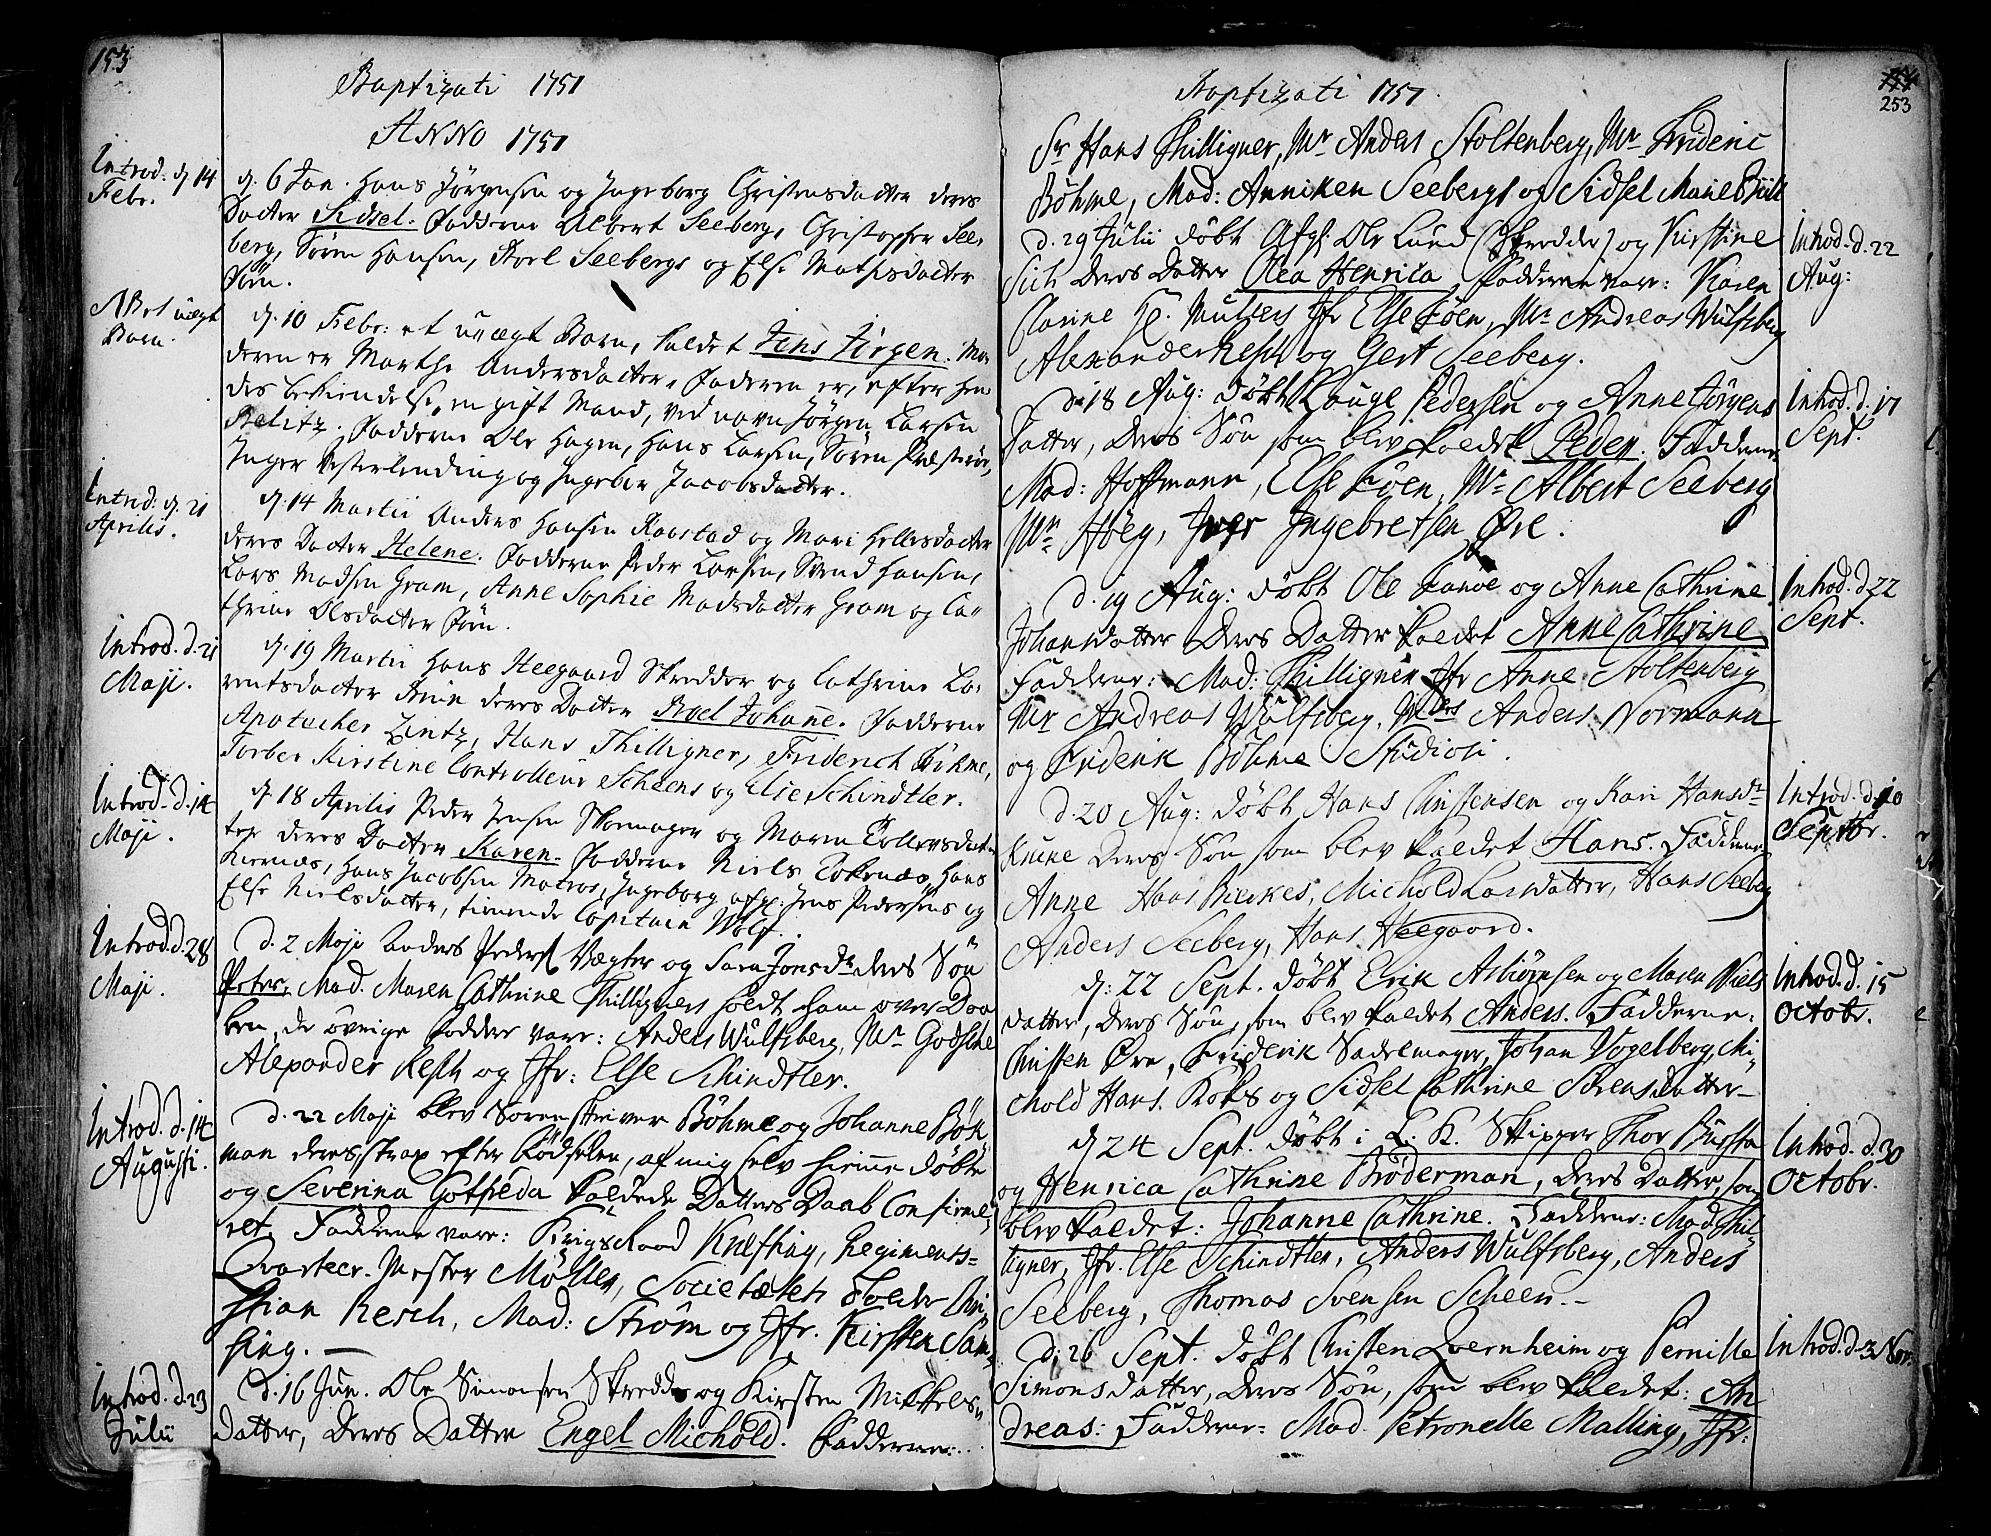 153
Baptizati 1751
ANNO 1751
Introd. d. 14
Febr.
d. 6 Jan. Hans Jørgensen og Ingeborg Christensdatter deres
Datter Sidsel. Faddere Albert Seeberg, Christopher See-
berg, Søren Hansen, Karl Seebergs og Else Mathisdatter
Føen.
NB et uægt
Barn.
d. 10 Febr: et uægt Barn, kaldet Jens Jørgen. Mo-
deren er Marthe Andersdatter, Faderen er, efter hen-
des bekiendelse, en gift Mand, ved navn Jørgen Larsen
Belitz. Faddere Ole Hagen, Hans Larsen, Søren
Inger Vesterlending og Ingebor Jacobsdatter.
Introd: d. 21
Aprilis.
d. 14 Martii Anders Hansen Raastad og Mari Hellesdatter
deres Datter Helene. Faddere Peder Larsen, Svend Hansen,
Lars Madsen Gram, Anne Sophie Madsdatter Gram og Ca-
thrine Olsdatter Føen.
Introd. d. 21
Maji.
d. 19 Martii Hans Heegaard Skredder og Cathrine La-
rentsdatter deres Datter Boel Johanne. Faddere
Apotecher Zintz, Hans Thilligner, Friderich Bøhme,
Torber Kirstine Controlleur Scheens og Else Schindtler.
Introd. d. 14
Maji.
d. 18 Aprilis Peder Jensen Skomager og Maren Tollevsdat-
ter deres Datter Karen. Faddere Niels Tokenæs, Hans
Kiernæs, Hans Jacobsen Matros, Ingeborg afgl: Jens Pedersens og
Else Nielsdatter, tienende Capitain Wolf.
Introd. d. 28
Maji.
d. 2 Maji Anders Peders. Vægter og Sara Jonsdr. deres Søn
Peter, Mad. Maren Cathrine Thilligners holdt ham over Daa-
ben, de øvrige Faddere vare: Anders Wulfsberg, Mr. Godske
Alexander Resch og Jfr: Else Schindtler.
Introd. d. 14
Augusti.
d. 22 Maji blev Sorenskriver Bøhme og Johanne Bøk-
man deres, strax efter Fødselen, af mig selv hiemme døbte
og Severina Gotfreda kaldede Datters Daab Confirme-
ret. Faddere vare: KrigsRaad Knefting, Regiments-
Qvarteer-Mester Møller, Societetets Tolder Chri-
stian Resch, Mad: Strøm og Jfr. Kirsten Sam-
sing.
Introd. d. 23
Julii
d. 16 Jun. Ole Simonsen Skredder og Kirsten Mikkels-
datter, deres Datter Engel Michold. Faddere:
253
Baptizati 1751.
Sr Hans Thilligner, Mr Anders Stoltenberg, Mr. Frideric
Bøhme, Mad: Anniken Seebergs og Sidsel Marie
Introd. d. 22
Aug:
d. 29 Julii døbt Afgl. Ole Lund (Skredder) og Kirstine
deres Datter Olea Henrica Fadderne vare: Karen
Clarine Jfr Else Føen, Mr. Andreas Wulfsberg
Alexander Resch og Gert Seeberg.
Introd. d. 17
Sept.
d. 18 Aug: døbt Lauge Pedersen og Anne Jørgens
Datter, deres Søn som blev kaldet Peder. Faddere
Mad: Hoffmann, Else Føen, Mr. Albert Seeberg
Mr. Høeg, Iver Ingebretsen Øre.
Introd. d. 22
Sept.
d. 19 Aug: døbt Ole og Anne Cathrine
Johansdatter deres Datter kaldet Anne Cathrine
Faddere: Mad: Thilligner Jfr Anne Stoltenberg
Mr Andreas Wulfsberg, Anders Normann
og Friderik Bøhme Studiosi.
Introd. d. 10
Septbr.
d. 20 Aug: døbt Hans Christensen og Kari Hansdr
deres Søn som blev kaldet Hans. Faddere
Anne Hans Bierkes, Michold Larsdatter, Hans Seeberg
Anders Seeberg, Hans Heegaard.
Introd. d. 15
Octobr.
d: 22 Sept. døbt Erik Asbiørnsen og Maren Niels
datter, deres Søn, som blev kaldet Anders. Fadderne:
Christen Øre, Friderik Sadelmager, Johan Vogelberg, Mi-
chold Hans. Koks og Sidsel Cathrine Sørensdatter
Introd. d. 30
Octobr.
d. 24 Sept. døbt i L. K. Skipper Thor Bugge
og Henrica Cathrine Brøderman, deres Datter, som
blev kaldet: Johanne Cathrine. Faddere: Mad. Thil-
ligner, Jfr. Else Schindtler, Anders Wulfsberg, Anders
Seeberg, Thomas Svensen Scheen.
Introd. d. 3 Nov.
d. 26 Sept. døbt Christen Qvernheim og Pernille
Simonsdatter, deres Søn, som blev kaldet: An
dreas: Faddere: Mad. Petronelle Malling, Jfr: